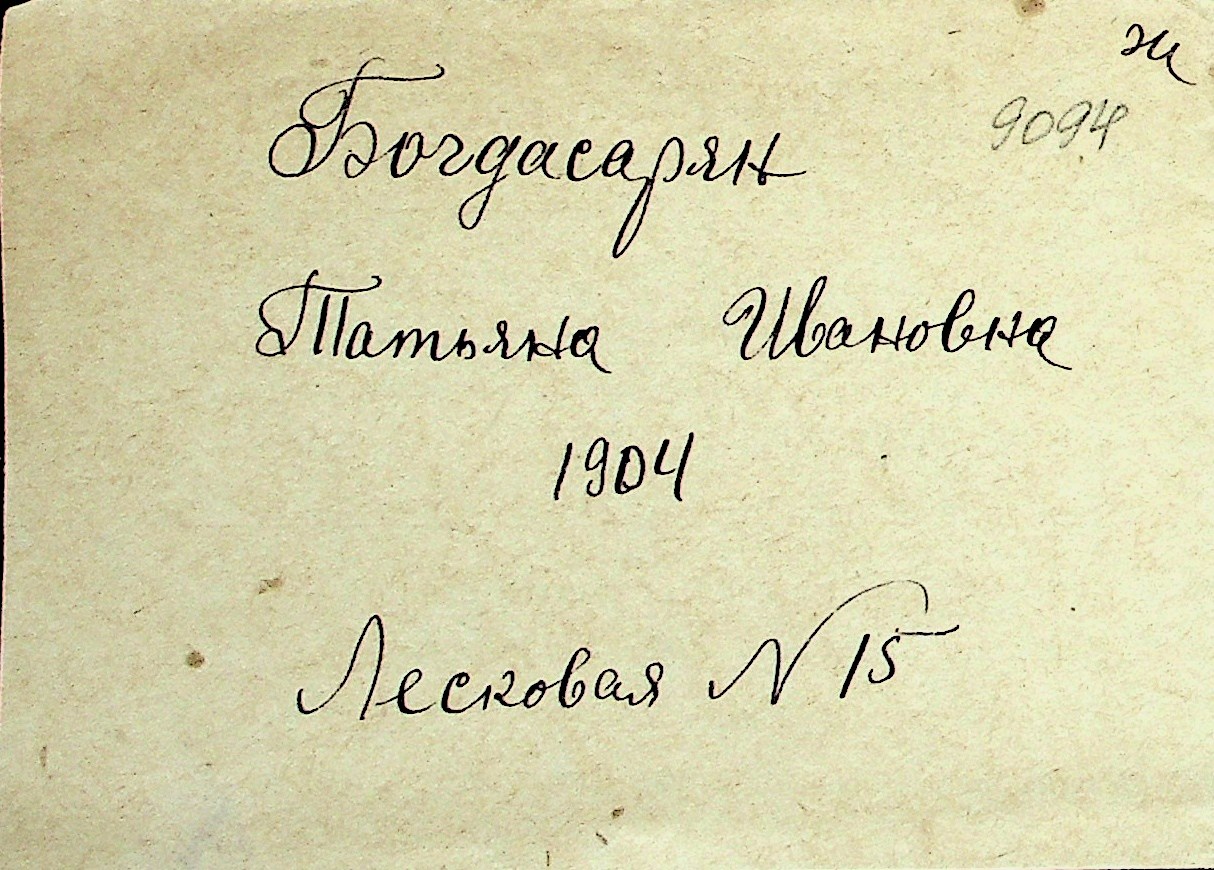 ж
9094
Богдасарян
Татьяна Ивановна
1904
Лесковая N 15